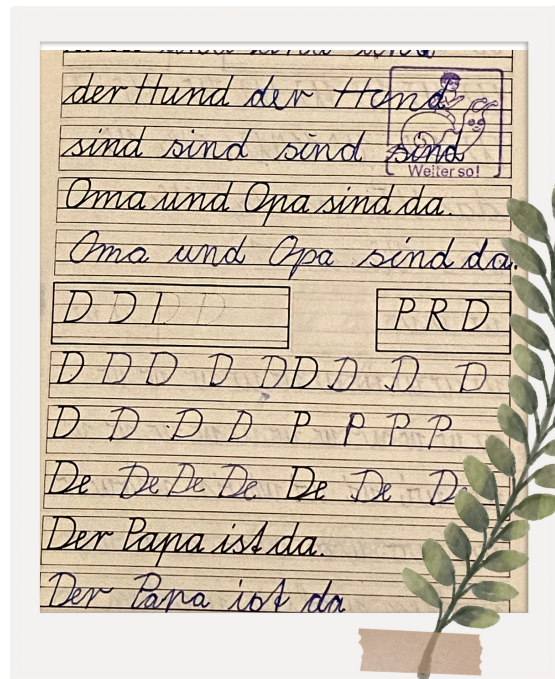 der Hund der Hund
sind sind sind sind
Weiter so!
Oma und Opa sind da.
Oma und Opa sind da.
D D
P R D
D D D D D D D D D
D D D D P P P P
De De De De De De De
Der Papa ist da.
Der Papa ist da